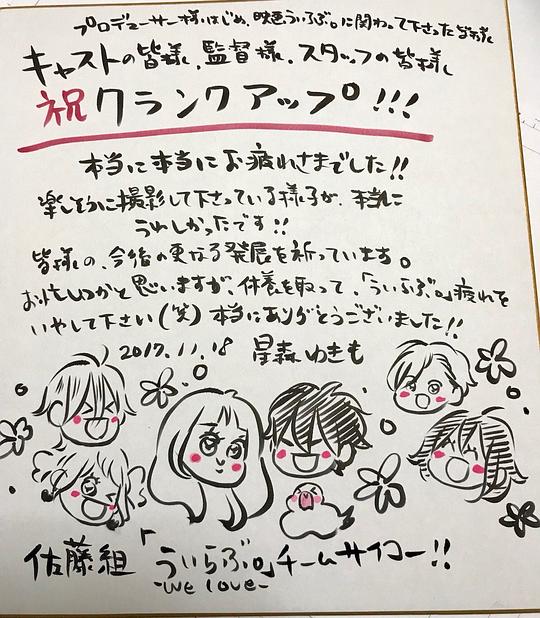 プロデューサー様はじめ、映画ういらぶ。に関わって下さった皆様
キャストの皆様、監督様、スタッフの皆様
祝クランクアップ!!!
本当に本当にお疲れさまでした!!
楽しそうに撮影して下さっている様子が、本当に
うれしかったです!!
皆様の、今後の更なる発展を祈っています。
お忙しいかと思いますが、休養を取って、「ういらぶ。」疲れを
いやして下さい(笑)本当にありがとうございました!!
2017.11.18 星森ゆきも
佐藤組「ういらぶ。」チームサイコー!!
-we love-